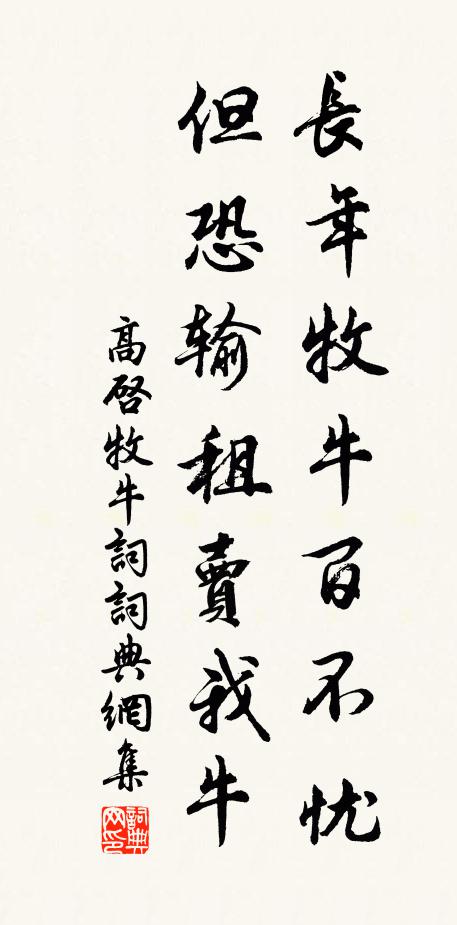 長年牧牛百不忧
但恐输租賣我牛
高啓牧牛詞詞典網集
詞典网印